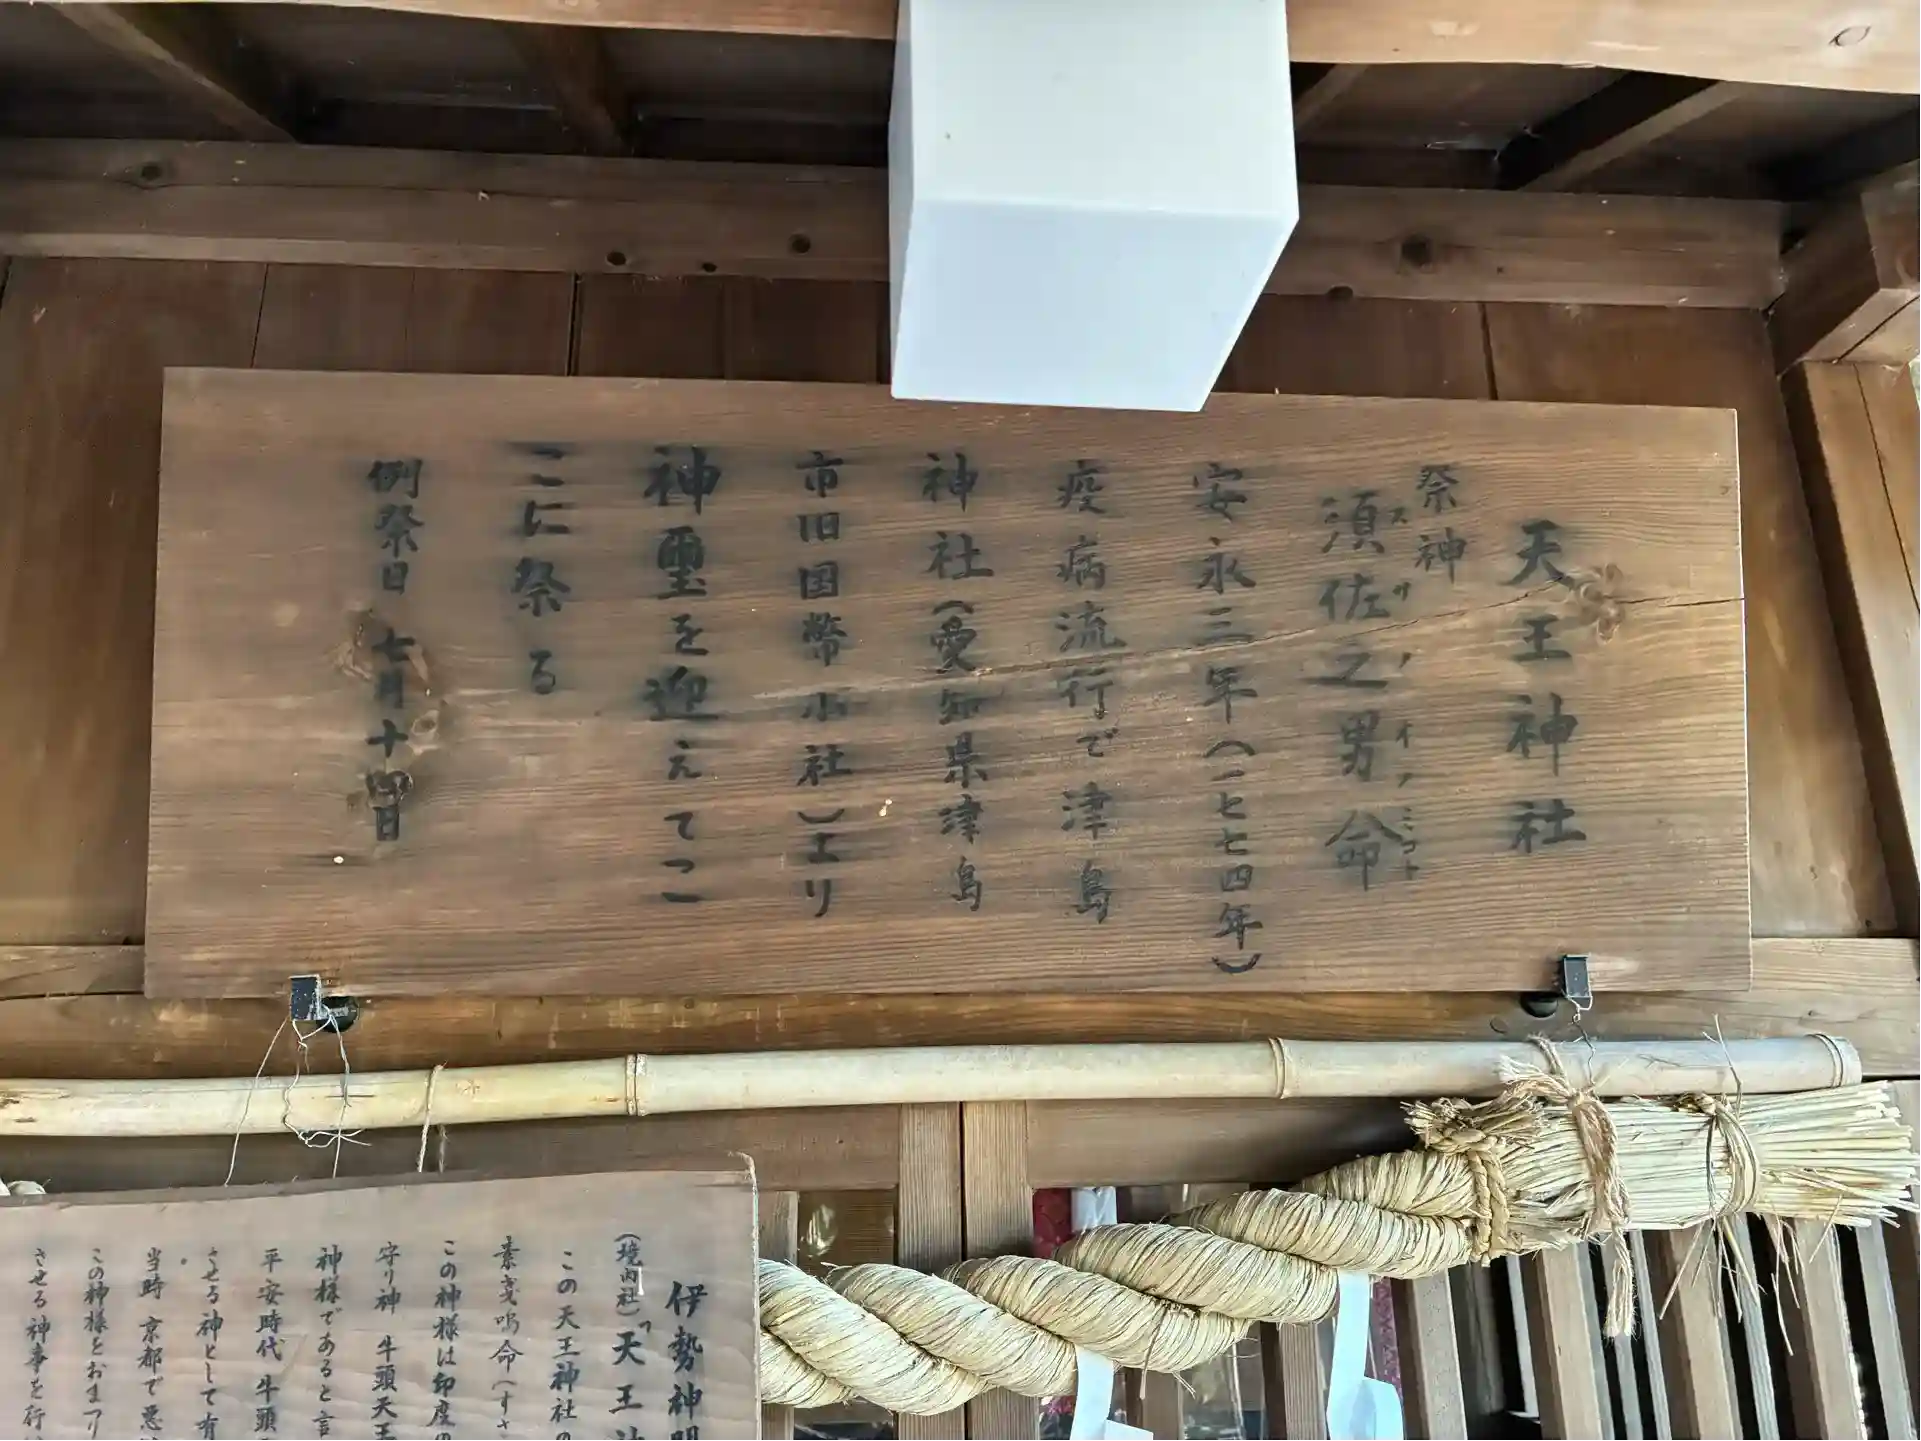 天王神社
祭神
須佐之男命
スサノオノミコト
安永三年（一七七四年）
疫病流行で津島
神社（愛知県津島
市旧国幣小社）より
神璽を迎えてこ
こに祭る
例祭日 七月十四日
伊勢神明
（境内社）「天王神
この天王神社の
素戔嗚命（すさ
この神様は印度の
守り神 牛頭天王
神様であると言
平安時代 牛頭
させる神として有
当時 京都で悪
この神様をおまつり
させる神事を行